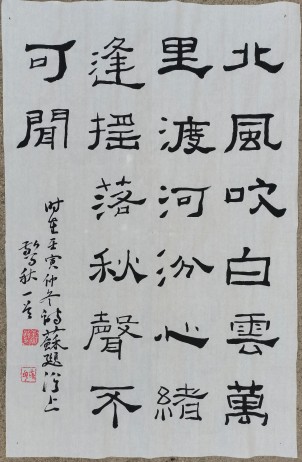 北風吹白雲萬
里渡河汾心緒
逢摇落秋聲不
可聞
时在壬寅仲冬蘇颋汾上
驚秋一首